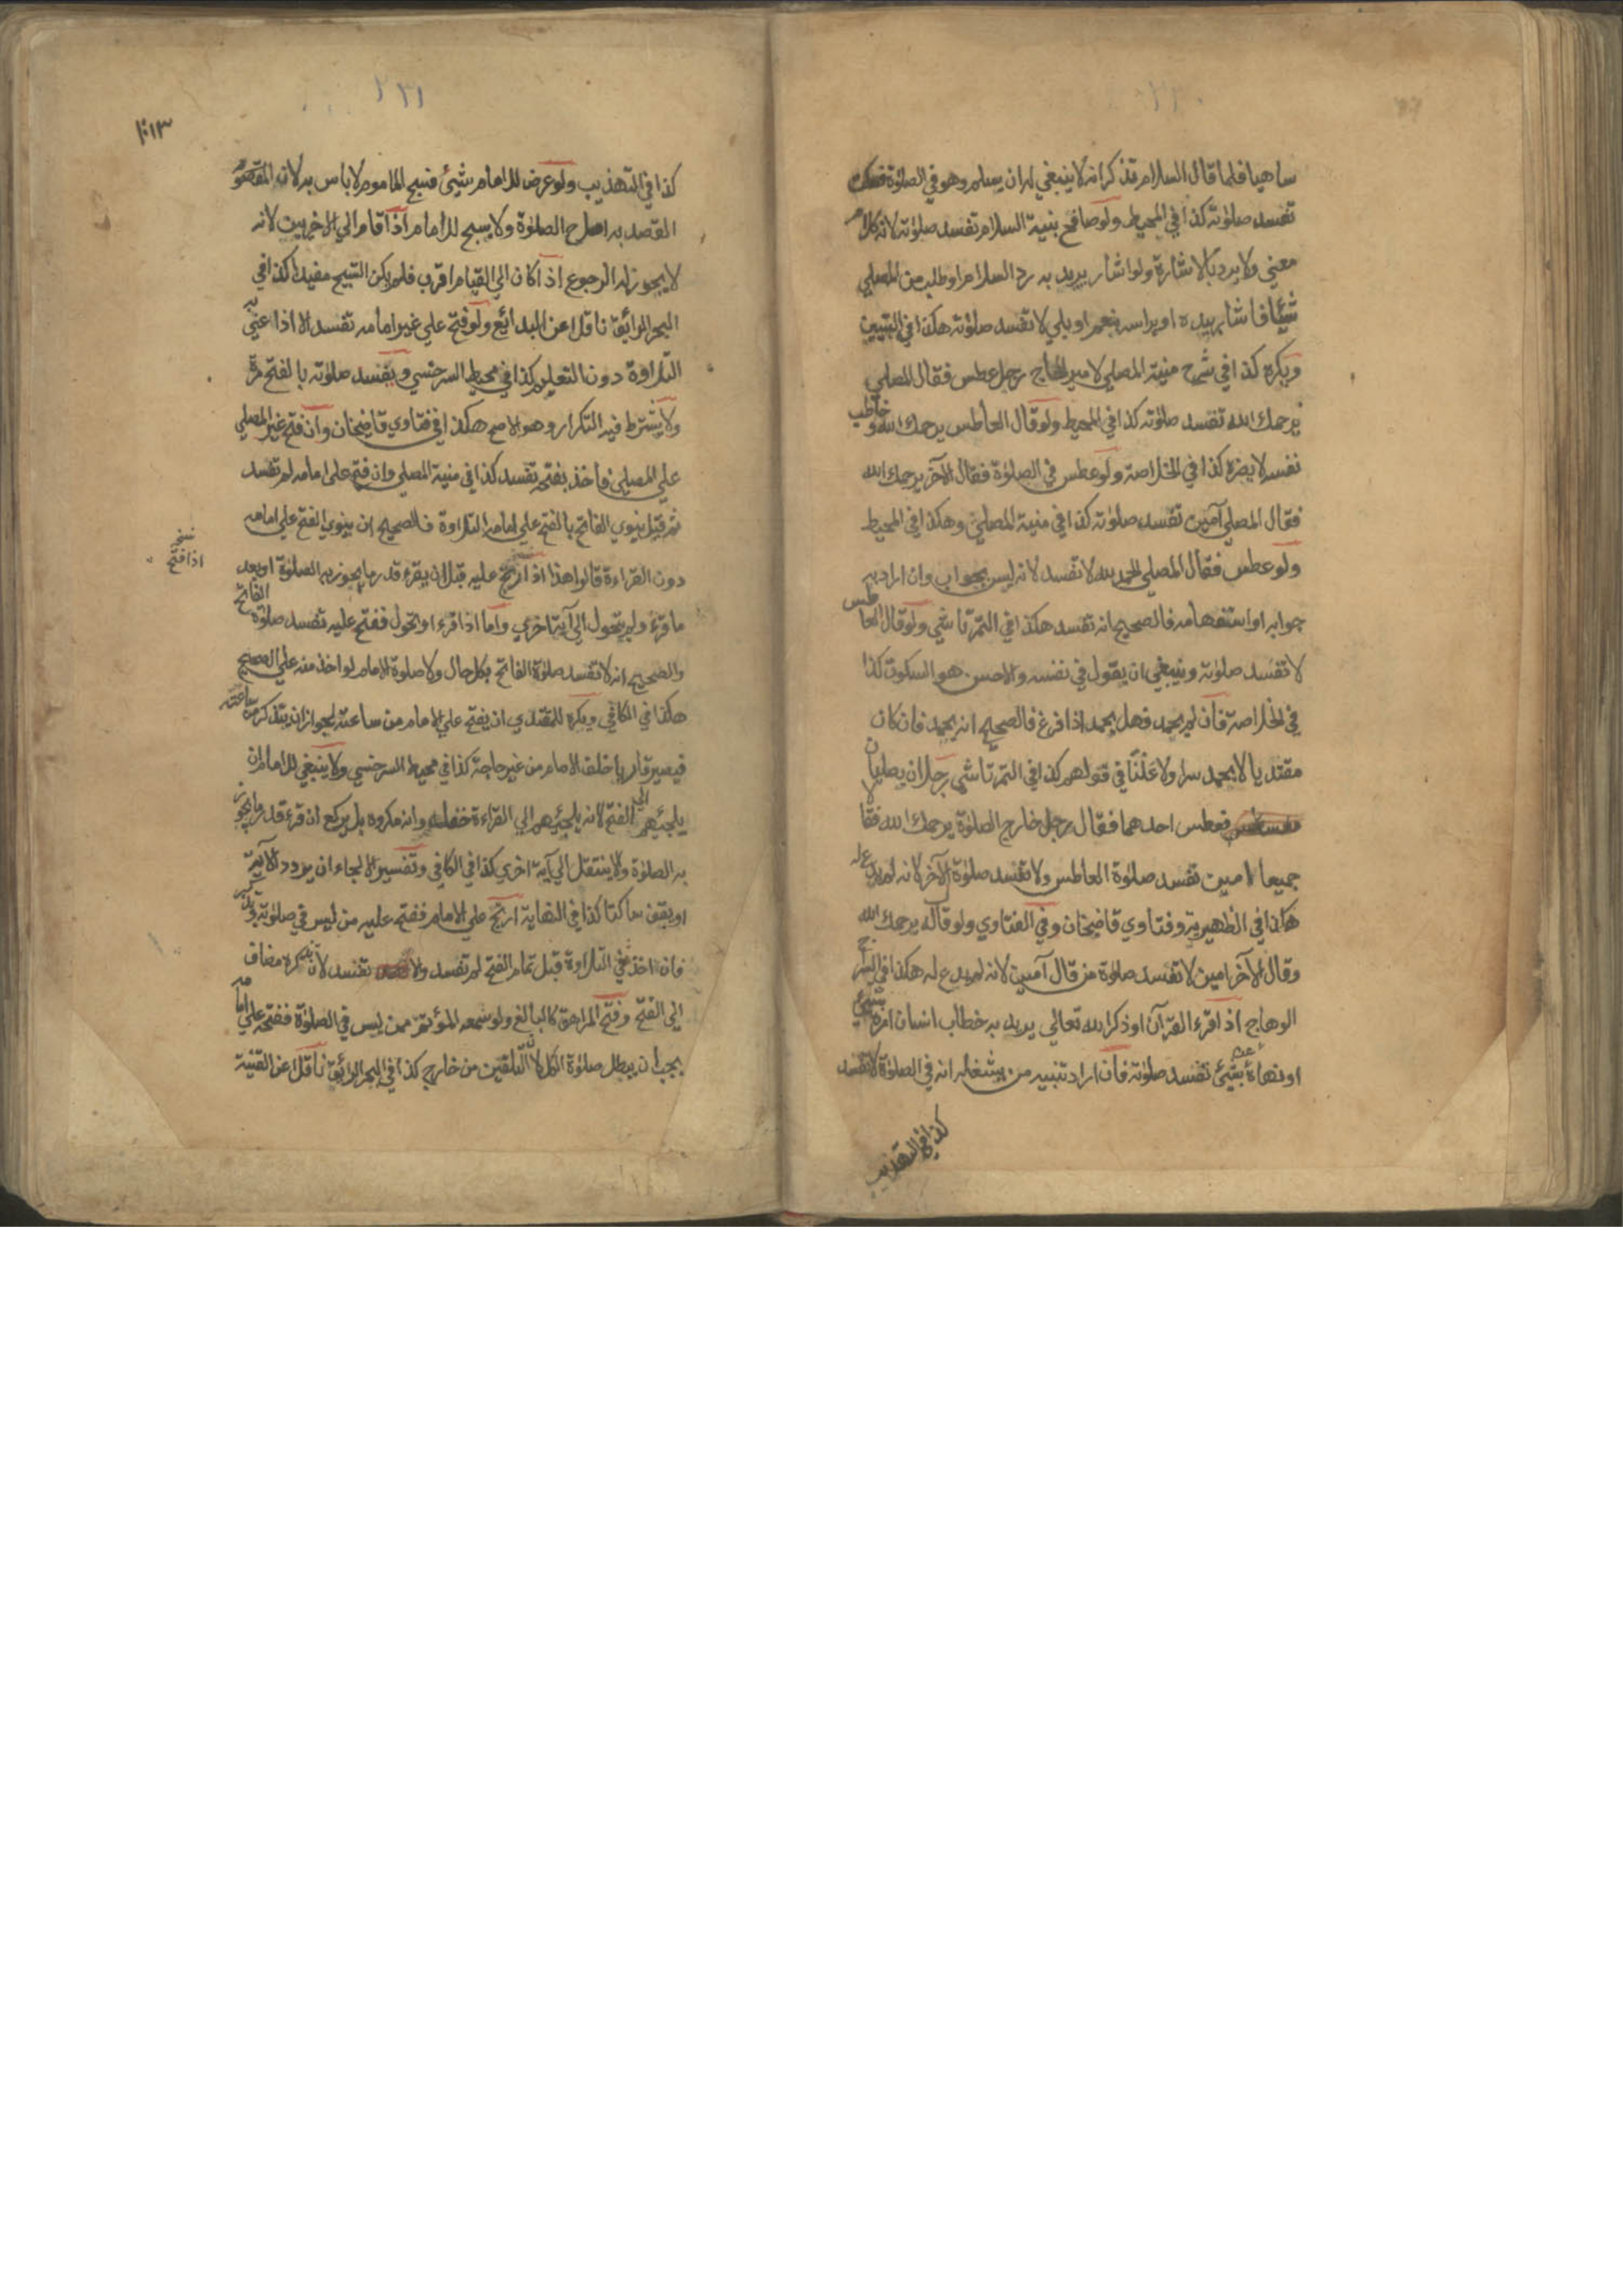 ٢٣٠
ساهيا فلما قال السلام تذكر انه لا ينبغي له ان يسلم وهو في الصلوٰة فسكت
تفسد صلوٰته كذا في المحيط ولو صافح بنية السلام تفسد صلوٰته لانه كلام
معني ولا يرد بالاشارة ولو اشار يريد به رد السلام او طلب من المصلي
شيئا فاشار بيده او براسه بنعم او بلي لا تفسد صلوٰته هكذا في التبيين
ويكره كذا في شرح منية المصلي لامير الحاج رجل عطس فقال المصلي
يرحمك الله تفسد صلوٰته كذا في المحيط ولو قال العاطس يرحمك الله وخاطب
نفسه لا يضره كذا في الخلاصة ولو عطس في الصلوٰة فقال الآخر يرحمك الله
فقال المصلي آمين تفسد صلوٰته كذا في منية المصلي وهكذا في المحيط
ولو عطس فقال المصلي الحمد لله لا تفسد لانه ليس بجواب وان اراد به
جوابه او استفهامه فالصحيح انه تفسد هكذا في التمرتاشي ولو قال العاطس
لا تفسد صلوٰته وينبغي ان يقول في نفسه والاحسن هو السكوت كذا
في الخلاصة فان لم يحمد فهل يحمد اذا فرغ فالصحيح انه يحمد فان كان
مقتديا لا يحمد سرا ولا علنا في قولهم كذا في التمرتاشي رجلان يصليان
فعطس احدهما فقال رجل خارج الصلوٰة يرحمك الله فقالا
جميعا امين تفسد صلوٰة العاطس ولا تفسد صلوٰة الآخر لانه لم يدع له
هكذا في الظهيرية وفتاوي قاضيخان وفي الفتاوي ولو قال له يرحمك الله
وقال الآخر امين لا تفسد صلوٰة من قال آمين لانه لم يدع له هكذا في السراج
الوهاج اذا قرء القرآن او ذكر الله تعالي يريد به خطاب انسان امره بشيء
او نهاه عن شيئ تفسد صلوٰته فان اراد تنبيه من يشغله انه في الصلوٰة لا تفسد
كذا في التهذيب
٢٣١
١٣
كذا في التهذيب ولو عرض للامام شيئ فسبح الماموم لا باس به لان المقصود
القصد به اصلاح الصلوٰة ولا يسبح للامام اذا قام الي الاخريين لانه
لا يجوز له الرجوع اذا كان الي القيام اقرب فلم يكن التسبيح مفيدا كذا في
البحر الرائق ناقلا عن البدائع ولو فتح علي غير امامه تفسد الا اذا عني به
التلاوة دون التعليم كذا في محيط السرخسي ويفسد صلوٰته بالفتح مرة
ولا يشترط فيه التكرار وهو الاصح هكذا في فتاوي قاضيخان وان فتح غير المصلي
علي المصلي فاخذ بفتحه تفسد كذا في منية المصلي وان فتح علي امامه لم تفسد
ثم قيل ينوي الفاتح بالفتح علي امامه التلاوة فالصحيح ان ينوي الفتح علي امامه
دون القراءة قالوا هذا اذا ارتج عليه قبل ان يقرء قدر ما يجوز به الصلوٰة او بعد
نسخه
اذا فتح
ما قرء ولم يتحول الي آية اخري واما اذا قرء او تحول ففتح عليه تفسد صلوٰة الفاتح
والصحيح انه لا تفسد صلوٰة الفاتح بكل حال ولا صلوة الامام لو اخذ منه علي الصحيح
هكذا في الكافي ويكره للمقتدي ان يفتح علي الامام من ساعته لجواز ان يتذكر من ساعته
فيصير قاريا خلف الامام من غير حاجة كذا في محيط السرخسي ولا ينبغي للامام ان
يلجئهم الي الفتح لانه يلجئهم الي القراءة خلفه وانه مكروه بل يركع ان قرء قدر ما يجوز
به الصلوٰة والا ينتقل الي آية اخري كذا في الكافي وتفسير الالجاء ان يردد الآية
او يقف ساكتا كذا في النهاية ارتج علي الامام ففتح عليه من ليس في صلوٰته وتذكر
فان اخذ في التلاوة قبل تمام الفتح لم تفسد والا تفسد لان تذكره مضاف
الي الفتح وفتح المراهق كالبالغ ولو سمعه المؤتم ممن ليس في الصلوٰة ففتحه علي امامه
يجب ان يبطل صلوٰة الكل لان التلقين من خارج كذا في البحر الرائق ناقلا عن القنية